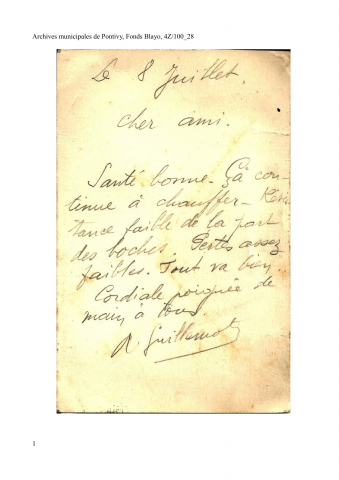 Archives municipales de Pontivy, Fonds Blayo, 4Z/100_28
Le 8 Juillet.
cher ami.
Santé bonne. Ça con-
tinue à chauffer - Résis
tance faible de la part
des boches. Pertes assez
faibles. Tout va bien.
Cordiale poignée de
main à tous
R. Guillemot
1